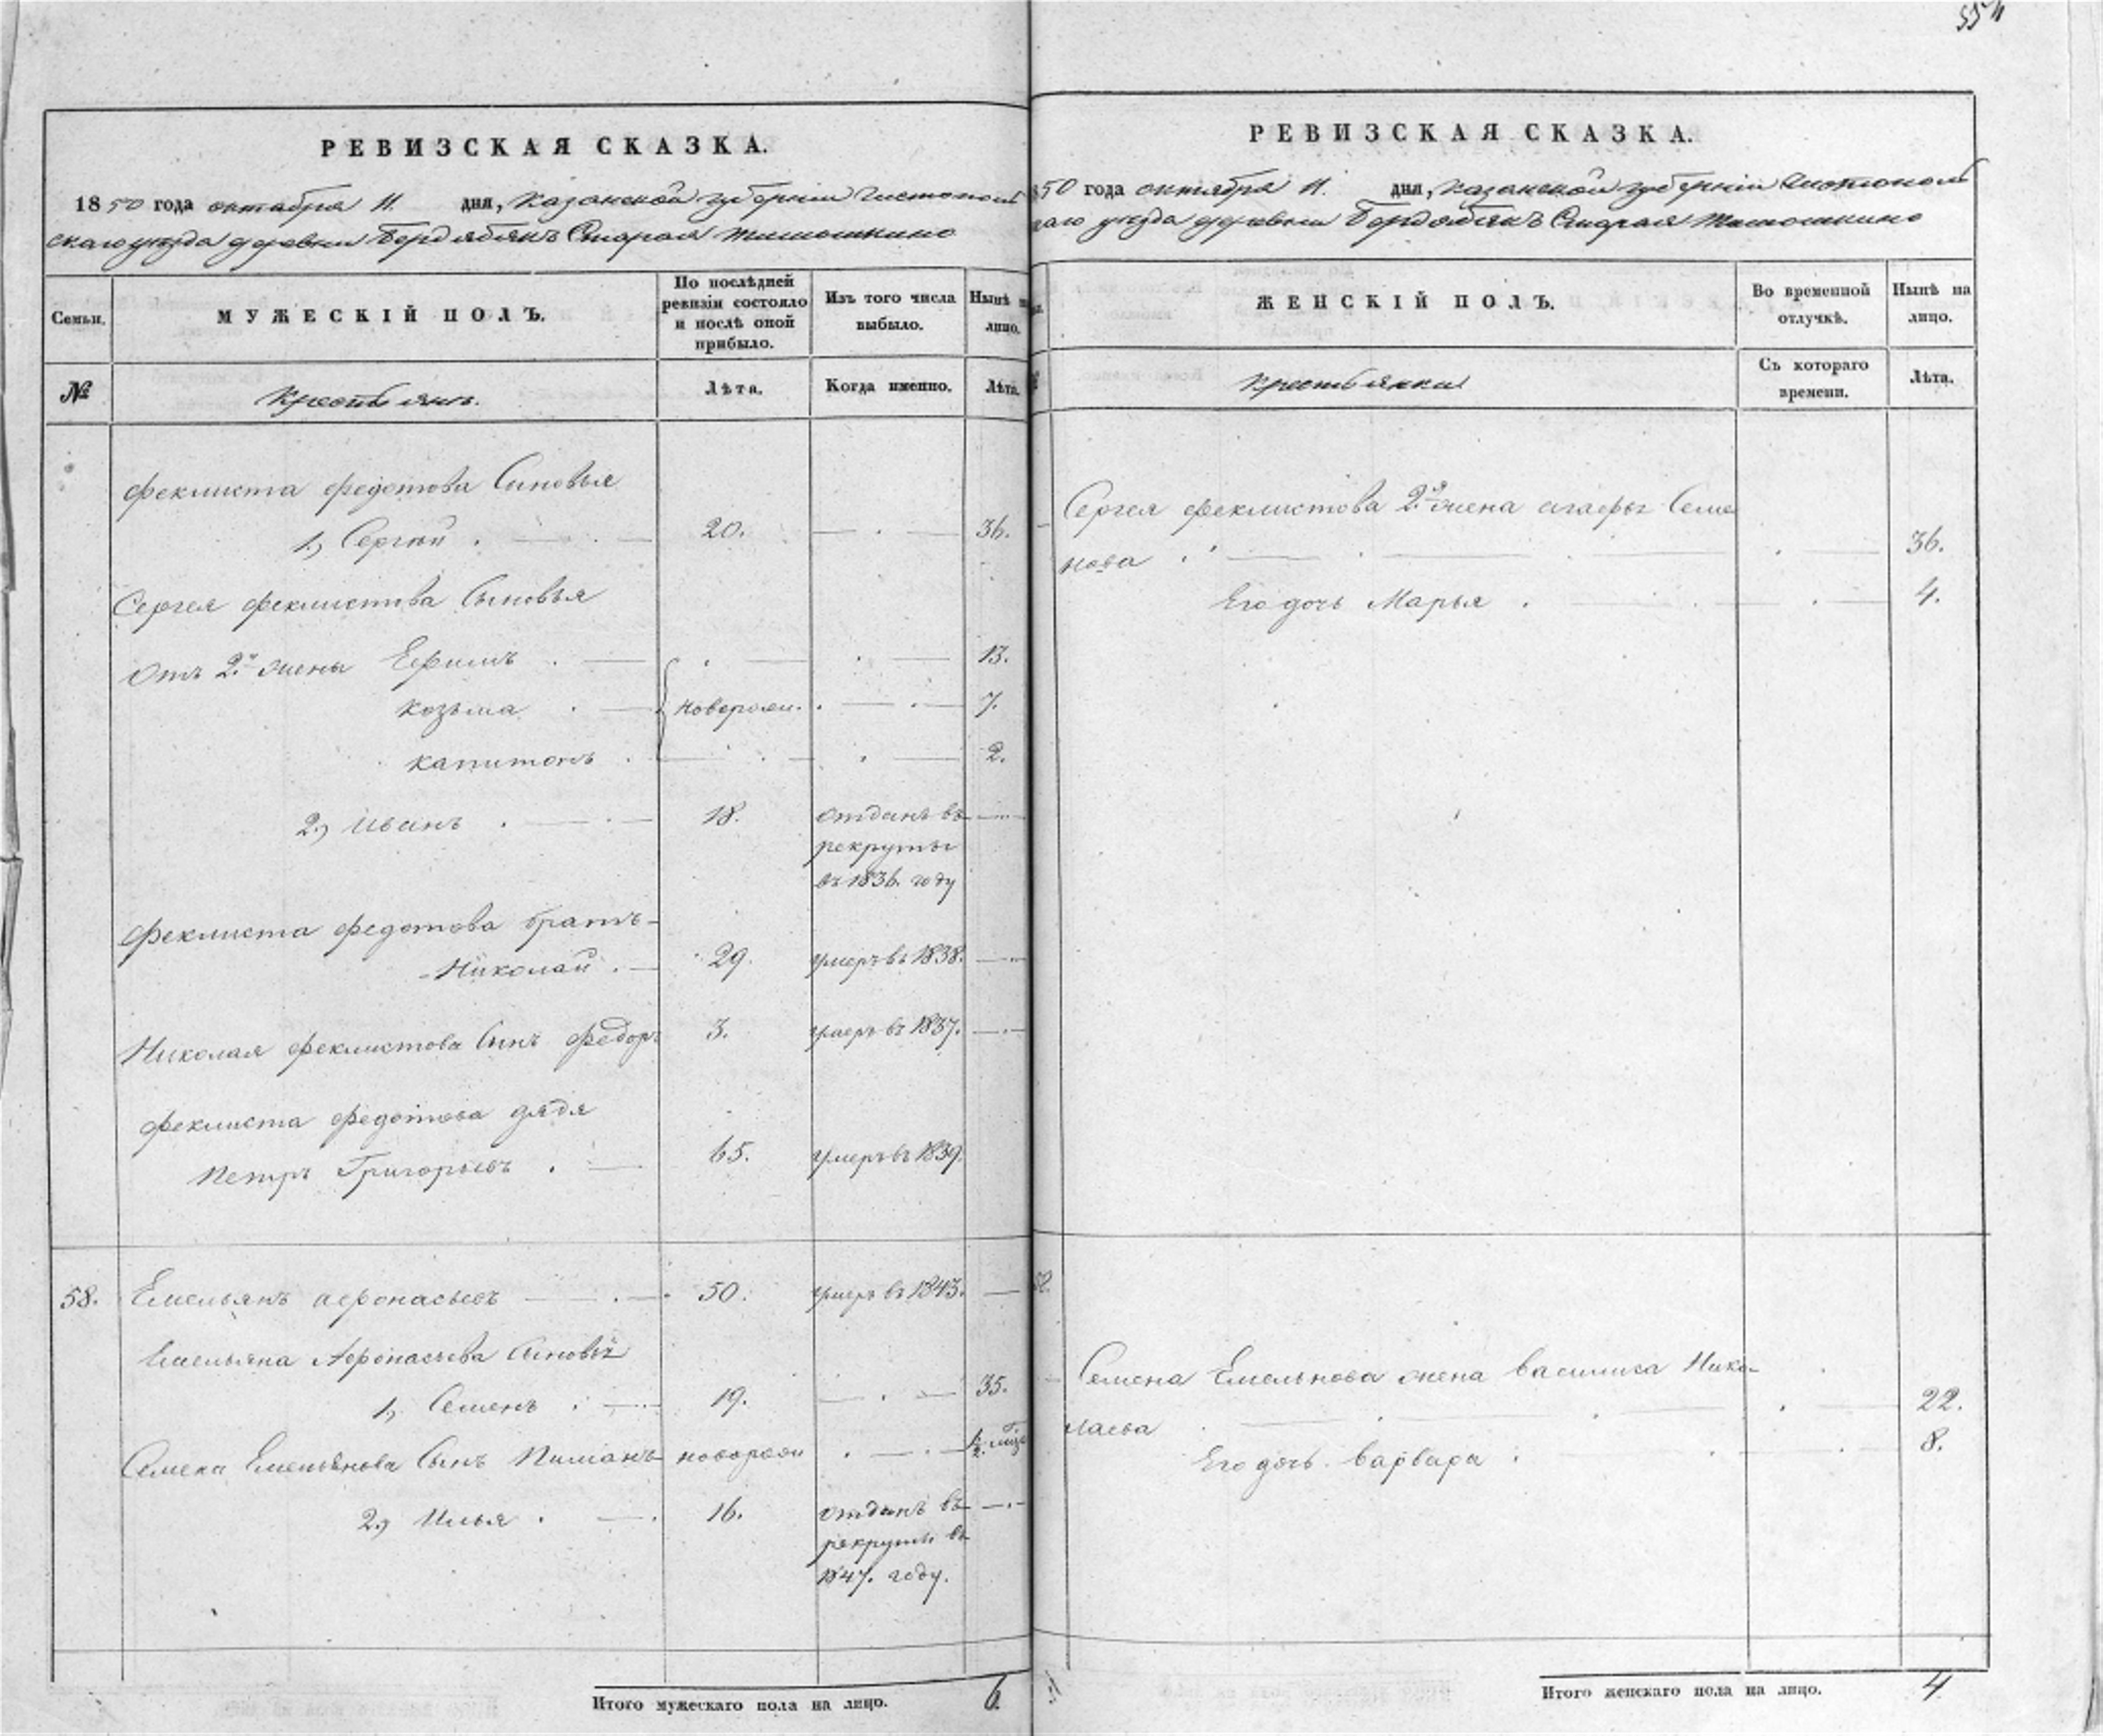 55
РЕВИЗСКАЯ СКАЗКА.
1850 года октября 11. дня, Казанской губерніи Чистополь
скаго уезда деревни Бердябякъ Старая Тимошкино
Семьи. МУЖЕСКІЙ ПОЛЪ. По послѣдней ревизіи состояло и послѣ оной прибыло. Изъ того числа выбыло. Нынѣ на лицо.
№ Крестьяне. Лѣта. Когда именно. Лѣта.
Феклиста Федотова Сыновья
1, Сергей 20. 36.
Сергея Феклистова Сыновья
Отъ 2й жены Ефимъ 13.
Козьма новорожд. 7.
Капитонъ 2.
2, Иванъ 18. отданъ въ
рекруты
въ 1836. году
Феклиста Федотова братъ
Николай 29. умеръ въ 1838.
Николая Феклистова Сынъ Федоръ 3. умеръ въ 1837.
Феклиста Федотова дядя
Петръ Григорьевъ 65. умеръ въ 1839.
58. Емельянъ Афонасьевъ 50. умеръ въ 1843.
Емельяна Афонасьева Сыновья
1, Семенъ 19. 35.
Семена Емельянова Сынъ новорож
2, Илья 16. отданъ въ
рекруты въ
1847. году.
Итого мужескаго пола на лицо. 6.
РЕВИЗСКАЯ СКАЗКА.
50 года октября 11. дня, Казанской губерніи Чистополь
каго уезда деревни Бердябякъ Старая Тимошкино
ЖЕНСКІЙ ПОЛЪ. Во временной отлучкѣ. Нынѣ на лицо.
Крестьянки Съ котораго времени. Лѣта.
Сергея Феклистова 2я жена Агафья Семе
нова 36.
Его дочь Марья 4.
58.
Семена Емельнова жена Василиса Нико
лаева 22.
Его дочь Варвара 8.
Итого женскаго пола на лицо. 4